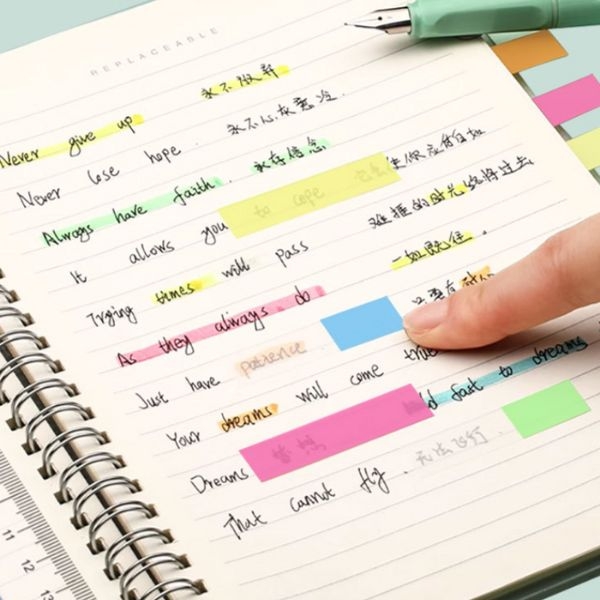 REPLACEABLE
Never give up 永不放弃
Never lose hope. 永不心灰意冷.
Always have faith. 永存信念
It allows you to cope 使你应付自如
Trying times will pass 难捱的时光终将过去
As they always do 一如既往.
Just have patience
Your dreams will come true
Dreams hold fast to dreams
That cannot fly. 无法飞行.
11
12
13